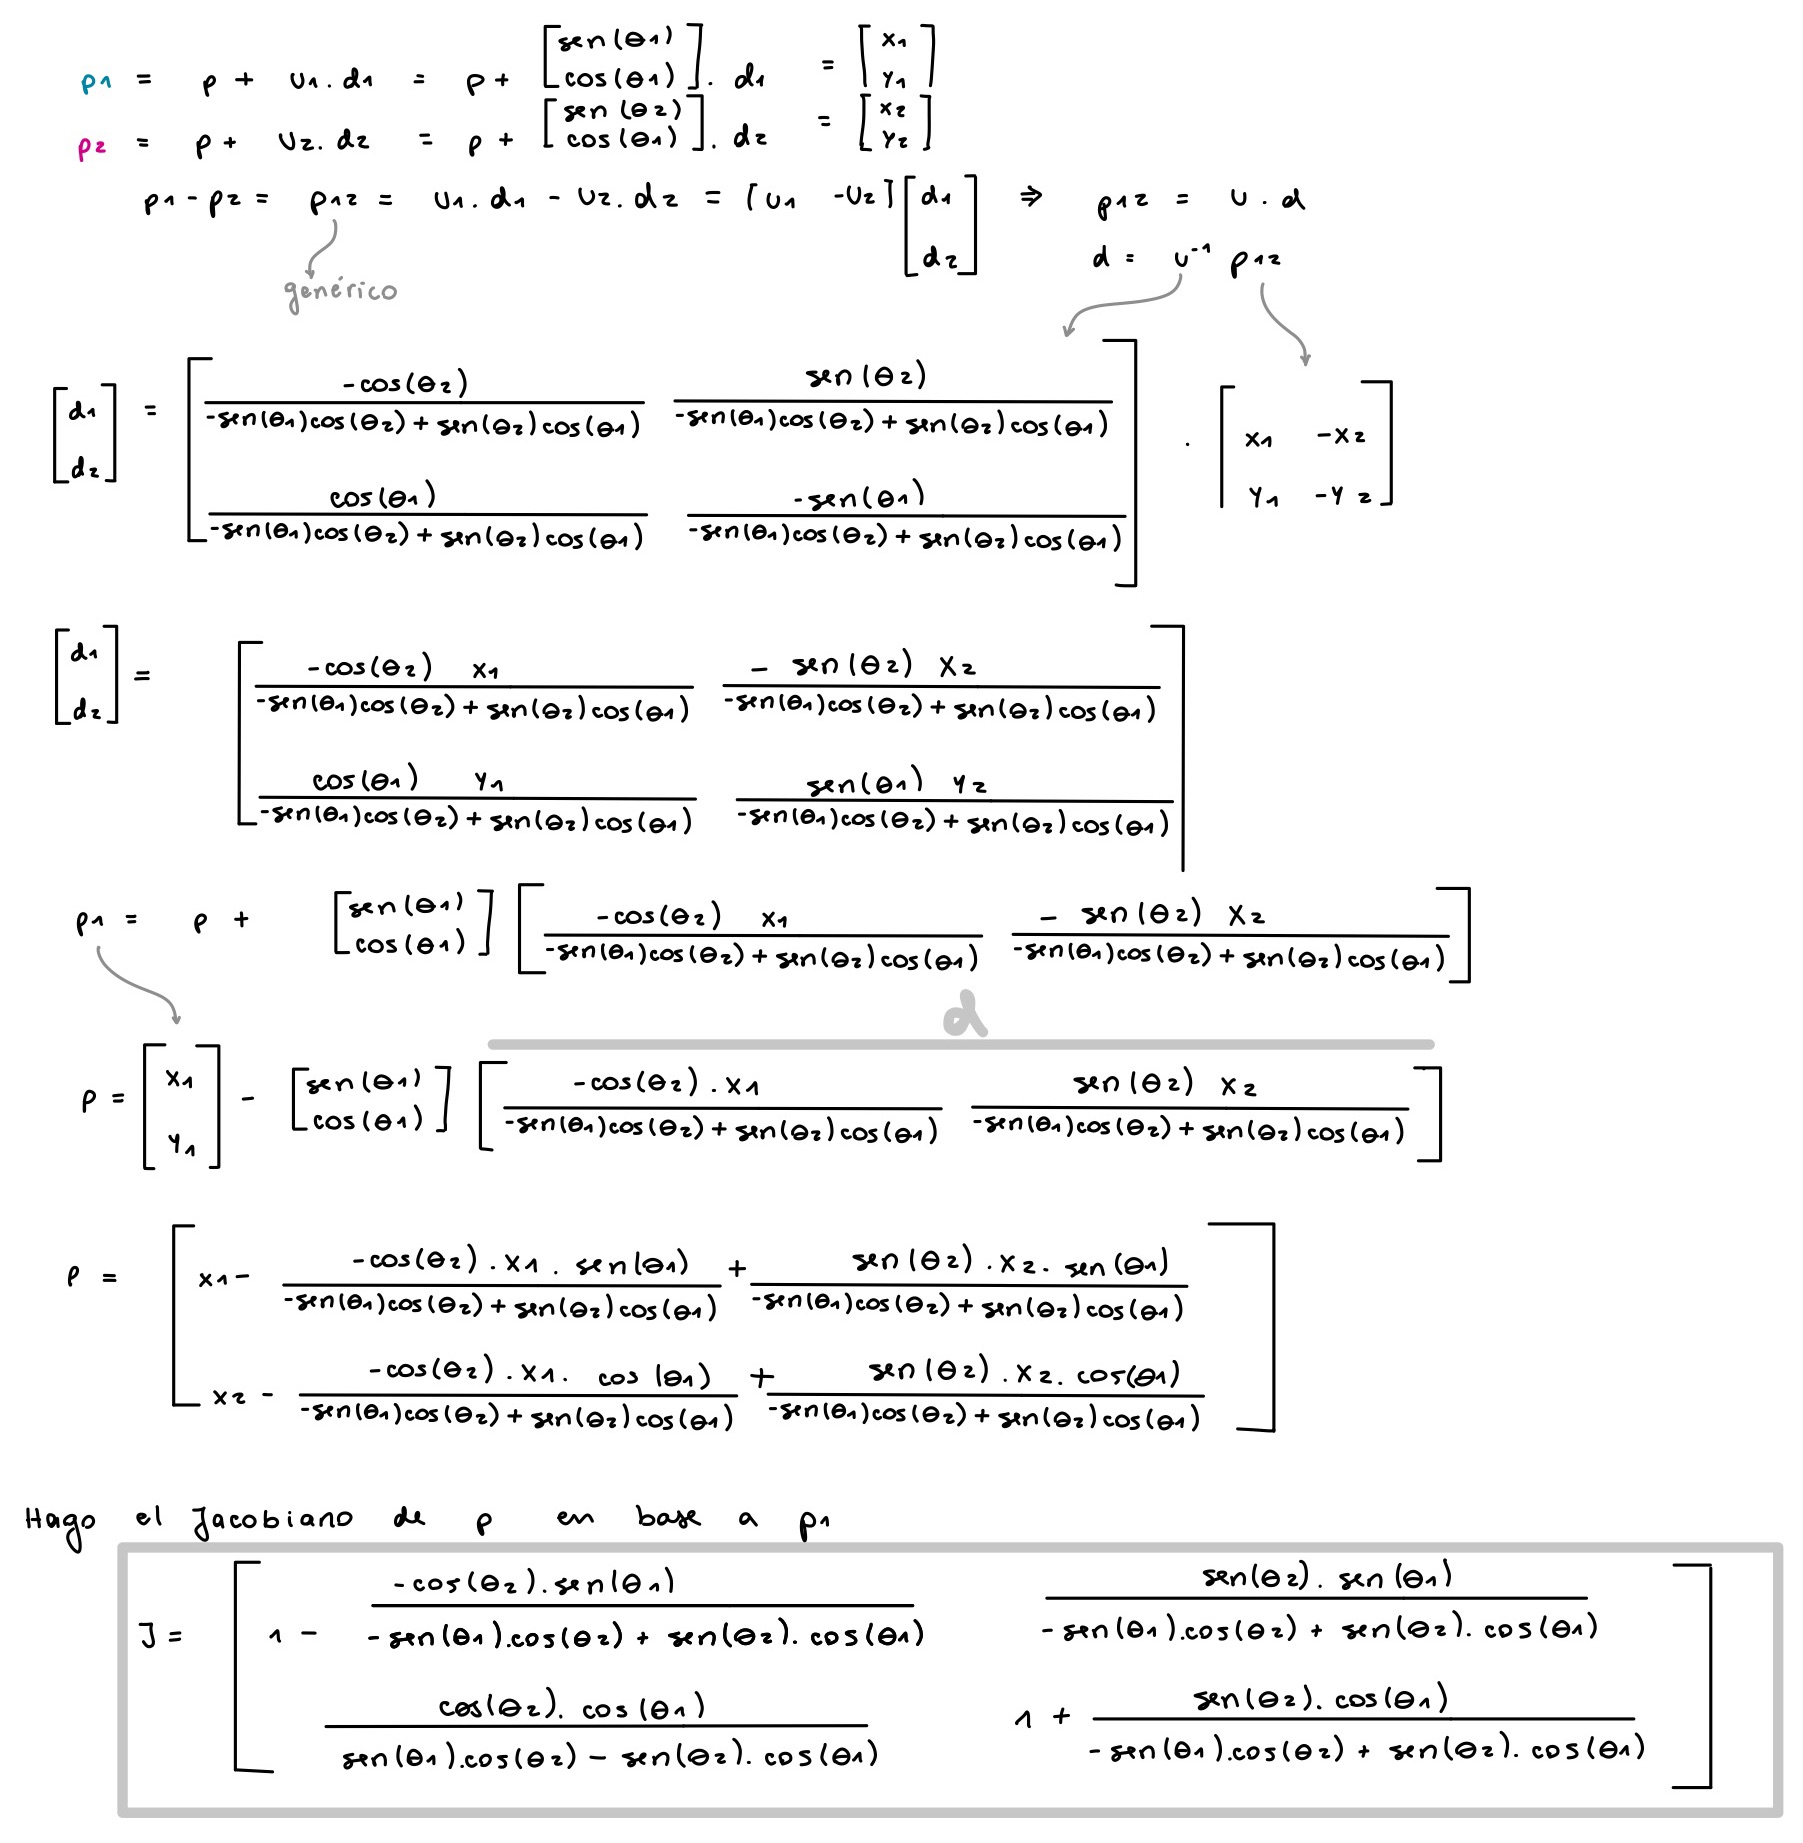 p1 = p + u1.d1 = p + [sen(θ1) cos(θ1)] . d1 = [x1 y1]
p2 = p + u2.d2 = p + [sen(θ2) cos(θ1)] . d2 = [x2 y2]
p1 - p2 = p12 = u1.d1 - u2.d2 = [u1 -u2] [d1 d2] ⇒ p12 = u . d
d = u⁻¹ p12
genérico
[d1 d2] = [ -cos(θ2) / -sen(θ1)cos(θ2) + sen(θ2)cos(θ1)   sen(θ2) / -sen(θ1)cos(θ2) + sen(θ2)cos(θ1)
cos(θ1) / -sen(θ1)cos(θ2) + sen(θ2)cos(θ1)   -sen(θ1) / -sen(θ1)cos(θ2) + sen(θ2)cos(θ1) ] . [ x1 -x2
y1 -y2 ]
[d1 d2] = [ -cos(θ2) x1 / -sen(θ1)cos(θ2) + sen(θ2)cos(θ1)   - sen(θ2) x2 / -sen(θ1)cos(θ2) + sen(θ2)cos(θ1)
cos(θ1) y1 / -sen(θ1)cos(θ2) + sen(θ2)cos(θ1)   sen(θ1) y2 / -sen(θ1)cos(θ2) + sen(θ2)cos(θ1) ]
p1 = p + [sen(θ1) cos(θ1)] [ -cos(θ2) x1 / -sen(θ1)cos(θ2) + sen(θ2)cos(θ1)   - sen(θ2) x2 / -sen(θ1)cos(θ2) + sen(θ2)cos(θ1) ]
d
p = [x1 y1] - [sen(θ1) cos(θ1)] [ -cos(θ2) . x1 / -sen(θ1)cos(θ2) + sen(θ2)cos(θ1)   sen(θ2) x2 / -sen(θ1)cos(θ2) + sen(θ2)cos(θ1) ]
p = [ x1 - -cos(θ2) . x1 . sen(θ1) / -sen(θ1)cos(θ2) + sen(θ2)cos(θ1) + sen(θ2) . x2 . sen(θ1) / -sen(θ1)cos(θ2) + sen(θ2)cos(θ1)
x2 - -cos(θ2) . x1 . cos(θ1) / -sen(θ1)cos(θ2) + sen(θ2)cos(θ1) + sen(θ2) . x2 . cos(θ1) / -sen(θ1)cos(θ2) + sen(θ2)cos(θ1) ]
Hago el Jacobiano de p en base a p1
J = [ 1 - -cos(θ2).sen(θ1) / -sen(θ1).cos(θ2) + sen(θ2).cos(θ1)   sen(θ2).sen(θ1) / -sen(θ1).cos(θ2) + sen(θ2).cos(θ1)
cos(θ2).cos(θ1) / sen(θ1).cos(θ2) - sen(θ2).cos(θ1)   1 + sen(θ2).cos(θ1) / -sen(θ1).cos(θ2) + sen(θ2).cos(θ1) ]